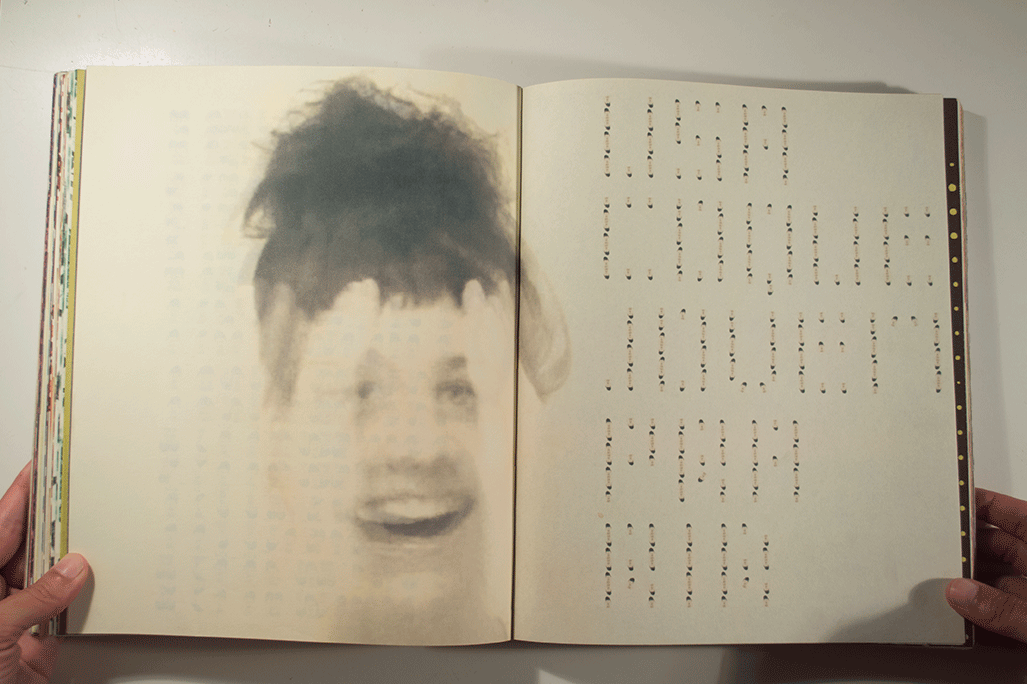 USA
COQUE
JOVEM
PRA
RIR